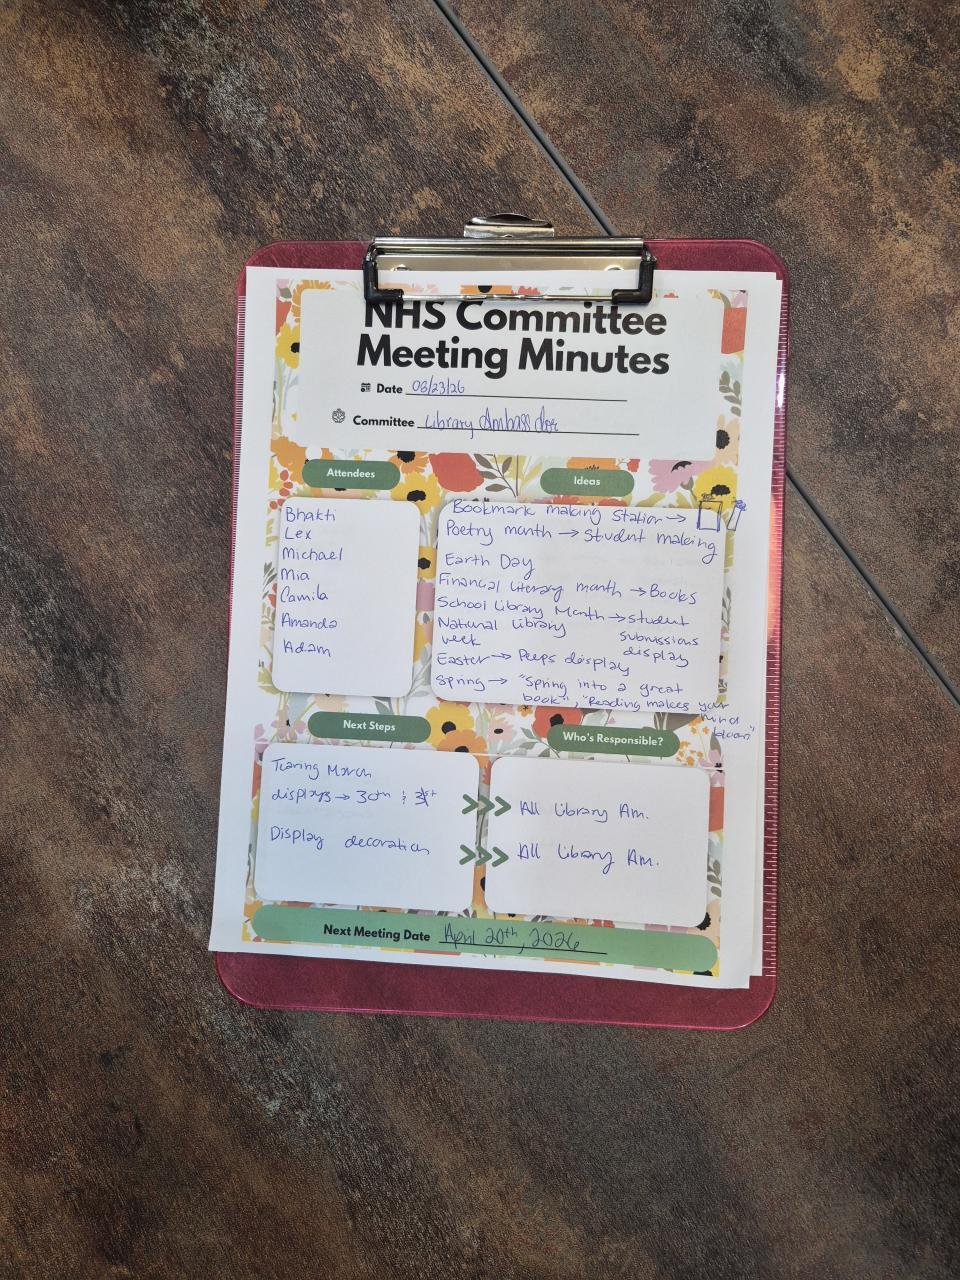 NHS Committee
Meeting Minutes
Date 03/23/26
Committee Library Ambassador
Attendees
Bhakti
Lex
Michael
Mia
Camila
Amanda
Adam
Ideas
Bookmark making station →
Poetry month → Student making
Earth Day
Financial literary month → Books
School Library Month → student
submissions
display
National Library
week
Easter → Peeps display
Spring → "Spring into a great
book", "Reading makes your
mind
bloom"
Next Steps
Tearing March
displays → 30th & 31st
Display decoration
Who's Responsible?
All Library Am.
All Library Am.
Next Meeting Date April 20th, 2026